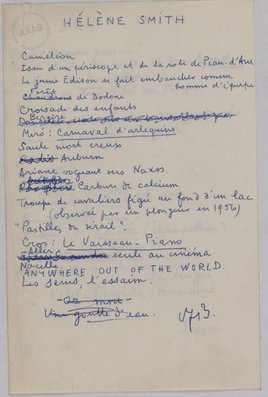 HÉLÈNE SMITH
Caméléon
Issu d'un périscope et de la robe de Peau d'Ane
Le jeune Edison se fait embaucher comme
homme d'équipe
Forêt
Chaudrons de Dodone
Croisade des enfants
Miró : Carnaval d'arlequins
Saule mort creux
Radis Auburn
Ariane voguant vers Naxos
Phosphore Carbure de calcium
Troupe de cavaliers figée au fond d'un lac
(observée par un plongeur en 1956)
"Pastilles du sérail".
Cros : Le Vaisseau-Piano
Aller seule au cinéma
Nacelle.
ANYWHERE OUT OF THE WORLD.
Les sens, l'essaim.
Une goutte d'eau.